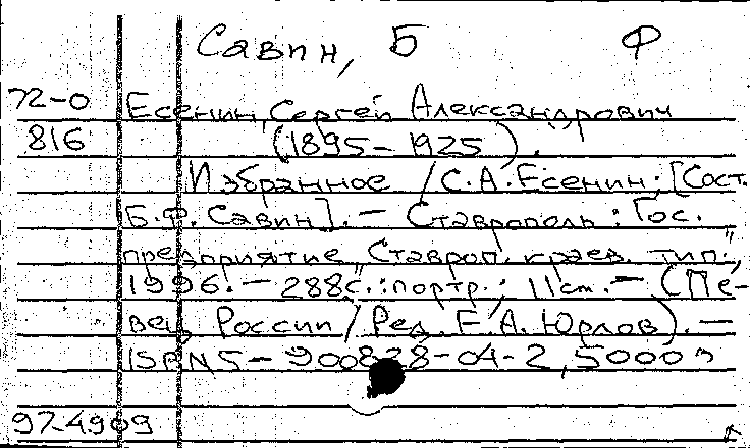 Савин, Б Ф
72-0 Есенин, Сергей Александрович
816 (1895-1925).
Избранное / С.А. Есенин; [Сост.
Б.Ф. Савин]. — Ставрополь: Гос.
предприятие "Ставроп. краев. тип.",
1996. — 288с.: портр.; 11см. — (Пе-
вец России / Ред. Е.А. Юрлов). —
ISBN 5-900828-04-2, 5000э
97-4909